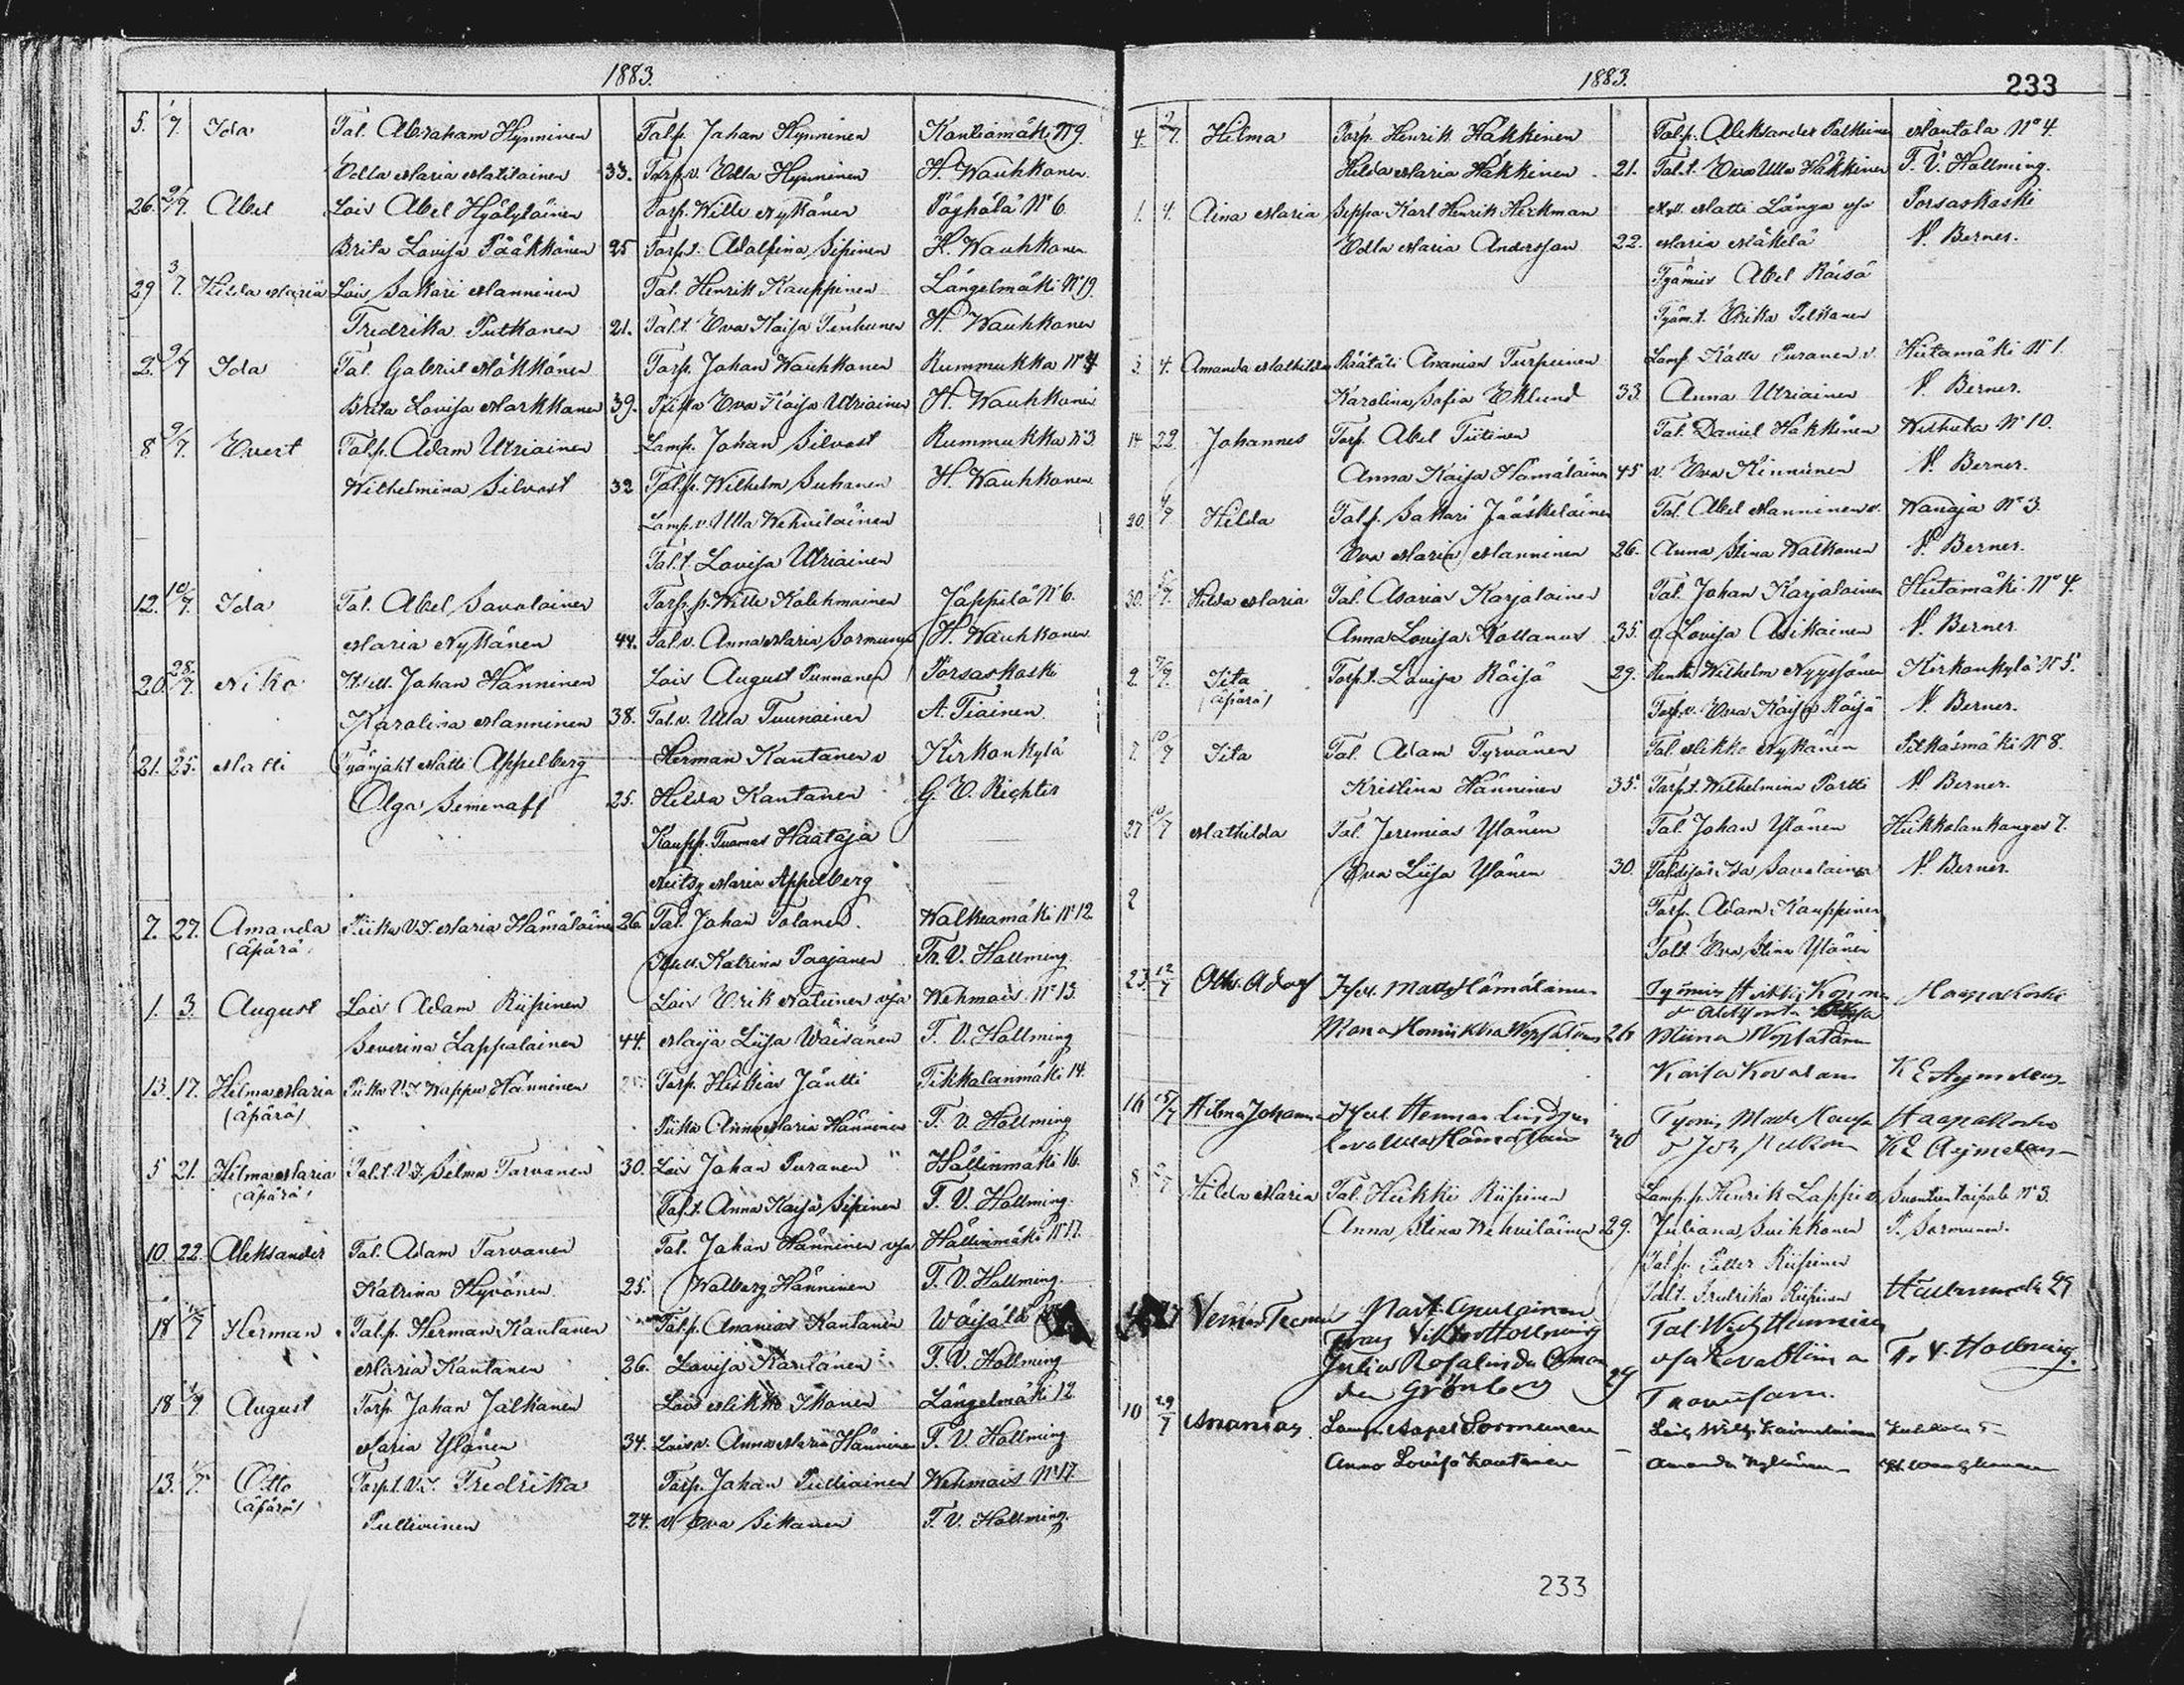 1883.
5. 1/7. Ida Tal. Abraham Hynninen Talp. Johan Hynninen Kontiomäki N 9.
Edla Maria Matilainen 33. Torp.v. Edla Hynninen H. Wauhkonen.
26. 2/7. Abel Lois Abel Hyölyläinen Torp. Wille Nykänen Pöyhölä N 6.
Brita Lovisa Pääkkönen 25 Torp.t. Adolfina Sipinen H. Wauhkonen
29 3/7. Hilda Maria Lois Sakari Manninen Tal. Henrik Kauppinen Längelmäki N 19.
Fredrika Putkonen 21. Tal.t. Eva Kaisa Tenhunen H. Wauhkonen
2. 9/7 Ida Tal. Gabriel Mökkönen Torp. Johan Wauhkonen Rummukka N 4
Brita Lovisa Markkanen 39. Piika Eva Kaisa Utriainen H. Wauhkonen
8 9/7. Evert Talp. Adam Utriainen Lamp. Johan Silvast Rummukka N 3
Wilhelmina Silvast 32 Tal.p. Wilhelm Suhonen H. Wauhkonen
Lamp.v. Ulla Wehviläinen
Tal.t. Lovisa Utriainen
12. 10/7. Ida Tal. Abel Savolainen Torp.p. Wille Kolehmainen Jäppilä N 6.
Maria Nykänen 44. Tal.v. Anna Maria Sormunen H. Wauhkonen
20. 28/7. Niko Itsell. Johan Hänninen Lois August Punnonen Porsaskoski
Karolina Manninen 38. Tal.v. Ulla Tuunainen A. Tiainen
21. 25. Matti Matti Appelberg Herman Kantanen v Kirkonkylä
Olga Semenoff 25. Hilda Kantanen G. V. Richter
Kaupp. Tuomas Haataja
Neitsy Maria Appelberg
7. 27. Amanda Piika V.T. Maria Hämäläinen 26. Tal. Johan Tolanen. Walkeamäki N 12
(äpärä) Itsell. Katrina Paajanen Fr. V. Hallming
1. 3. August Lois Adam Riipinen Lois Erik Matinen v:sa Wehmais. N 13.
Severina Lappalainen 44. Maija Liisa Wäisänen F. V. Hallming
13. 17. Hilma Maria Piika V.T. Wappu Hänninen Torp. Heskias Jäntti Tikkalanmäki 14.
(äpärä) Piika Anna Maria Hänninen F. V. Hallming
5 21. Hilma Maria Tal.t. V.T. Selma Tarvanen 30. Lois Johan Puranen Hällinmäki 16.
(äpärä) Tal.t. Anna Kaisa Sipinen F. V. Hallming.
10. 22. Aleksander Tal. Adam Tarvanen Tal. Johan Hänninen v:sa Hällinmäki N 17.
Katrina Hyvönen 25. Walborg Hänninen F. V. Hallming.
18 1/7 Herman Talp. Herman Kantanen Talp. Ananias Kantanen Wäisälä
Maria Kantanen 26. Lovisa Kantanen F. V. Hallming
18 August Torp. Johan Jalkanen Lois Mikko Ikonen Längelmäki 12
Maria Ylönen 34. Lois.v. Anna Maria Hänninen F. V. Hallming
13. Otto Torp.t. V.T. Fredrika Torp. Johan Pulliainen Wehmais N 17.
(äpärä) Pulliainen 24. v Eva Sikanen F. V. Hallming.
1883.
233
4. 2/7. Hilma Torp. Henrik Häkkinen Tal.p. Aleksander Pulkkinen Montola No 4.
Hilda Maria Häkkinen 21. Tal.t. Eva Ulla Häkkinen F. V. Hallming.
1. 4. Aina Maria Seppä Karl Henrik Herkman Myll. Matti Länga v:sa Porsaskoski
Edla Maria Andersson 22. Maria Mäkelä V. Berner.
Työmies Abel Räisä
Työm.t. Erika Pelkonen
3. 4. Amanda Mathilda Räätäli Ananias Turpeinen Lamp. Kalle Puranen v. Hiitamäki N 1.
Karolina Sofia Eklund 33. Anna Utriainen V. Berner.
14 22 Johannes Torp. Abel Tiitinen Tal. Daniel Häkkinen Wihuta N 10.
Anna Kaisa Hämäläinen 45 v. Eva Kinnunen V. Berner.
20. 4/7 Hilda Talp. Sakari Jääskeläinen Tal. Abel Manninen v. Wanaja N 3.
Eva Maria Manninen 26. Anna Stina Walkonen V. Berner.
30. 5/7. Hilda Maria Tal. Asarias Karjalainen Tal. Johan Karjalainen Hiitamäki No 4.
Anna Lovisa Kollanus 35. v. Lovisa Asikainen V. Berner.
2. 9/7. Iita Torp.t. Lovisa Räisä 29. Renki Wilhelm Nyyssönen Kirkonkylä N 5.
(äpärä) Torp.v. Eva Kaisa Räisä V. Berner.
7. 10/7 Iita Tal. Adam Tyrvänen Tal. Mikko Nykänen Pitkäsmäki N 8.
Kristina Hänninen 35. Torp.t. Wilhelmina Partti V. Berner.
27 10/7 Mathilda Tal. Jeremias Ylönen Tal. Johan Ylönen Heikkolankangas 7.
Eva Liisa Ylönen 30. Ida Savolainen V. Berner.
2 Torp. Adam Kauppinen
Tal.t. Eva Stina Ylönen
23. 12/7 Otto Adolf Hämäläinen Työmies Heikki Haapakoski
26
K E Aejmelaeus
16 15/7 Hilma Johanna Herman Lindgren Haapakoski
40 K E Aejmelaeus
8. Hilda Maria Tal. Heikki Riipinen Lamp.p. Henrik Lappi v. Suontientaipale N 3.
Anna Stina Wehviläinen 29. Juliana Suihkonen P. Sormunen.
Tal.p. Petter Riipinen
Tal.t. Fredrika Riipinen Hällinmäki 29
Frans Viktor Hollming
Julia Rosalinda v:sa Eva Stina F. V. Hollming.
Grönberg 29
10 29/7 Ananias Lamp. Aapel Sormunen
Anna Lovisa Kantanen
233